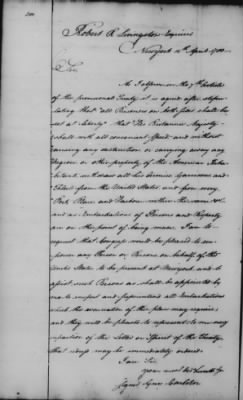 Robert R Livingston Esquire
New york 14th April 1783.
Sir
As I observe in the 7th Article
of the provisional Treaty it is agreed after stipu
lating that "all Prisoners on both sides shall be
set at Liberty that His Britannic Majesty
shall with all convenient Speed and without
carrying any destruction or carrying away any
Negroes or other property of the American Inha
bitants withdraw all his Armies Garrisons and
Fleets from the United States and from every
Port Place and Harbour within the same &c"
and as Embarkations of Persons and Property
are on the point of being made I am to
request that Congress would be pleased to em
power any Person or Persons on behalf of the
United States to be present at New york and to
assist such Persons as shall be appointed by
me to inspect and superintend all Embarkations
which the evacuation of this place may require
and they will be pleased to represent to me any
infraction of the Letter or Spirit of the Treaty
that redress may be immediately ordered
I am Sir
your most obt Servt
Signed Guy Carleton